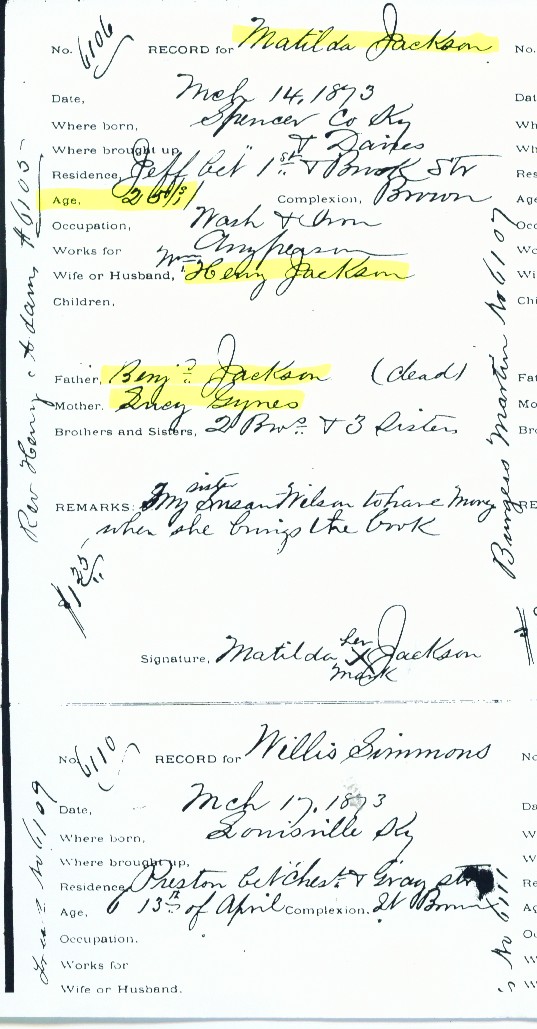 No. 6106 RECORD for Matilda Jackson
Date, Mch 14, 1873
Where born, Spencer Co Ky
Where brought up, " &
Residence, Jeff bet 1st & Brook Str
Age, Complexion, Brown
Occupation, Wash & Iron
Works for Any person
Wife or Husband, Henry Jackson
Children,
Father, Benj Jackson (dead)
Mother. Lucy Gynes
Brothers and Sisters, 2 Bros & 3 Sisters
REMARKS: My sister Susan Wilson to have money
when she brings the book
$125
Signature, Matilda her X mark Jackson
Rev Henry Adams #6105
Burgess Martin No 6107
No. 6110 RECORD for Willis Simmons
Date, Mch 17, 1873
Where born, Louisville Ky
Where brought up,
Residence, Preston bet Chest & Gray str
Age, 6 13th of April Complexion, Lt Brown
Occupation.
Works for
Wife or Husband.
No 6109
No 6111